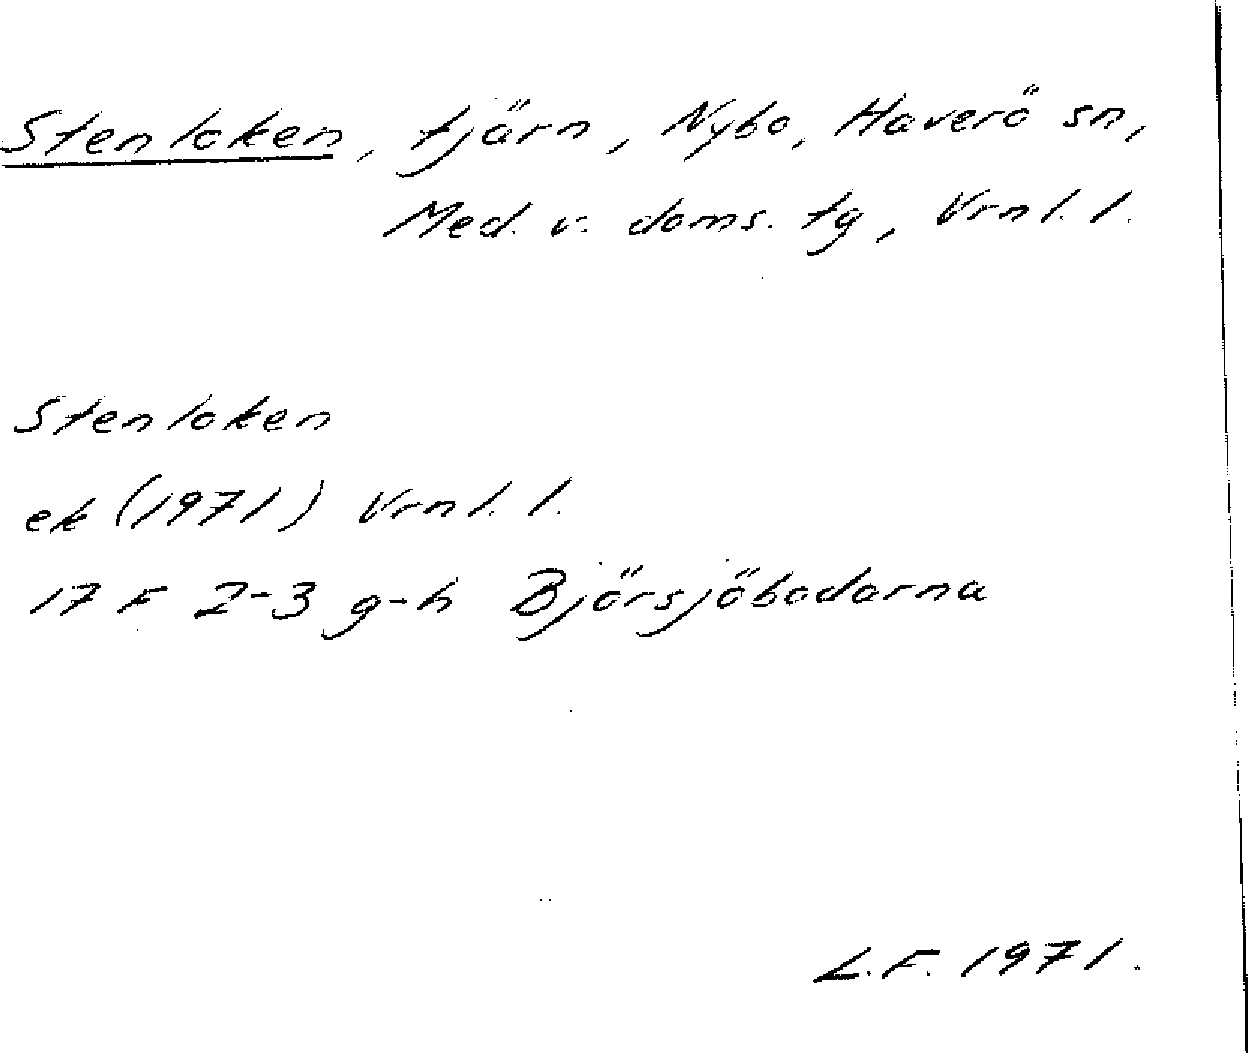 Stenloken, tjärn, Nybo, Haverö sn,
Med. v. doms. tg, Vrnl. l.
Stenloken
ek (1971) Vrnl. l.
17 F 2-3 g-h Björsjöbodarna
L.F. 1971.